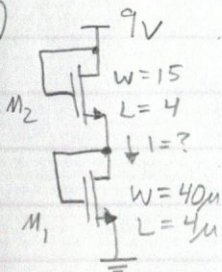 9V
W=15
L=4
M2
↓ I=?
W=40μ
L=4μ
M1